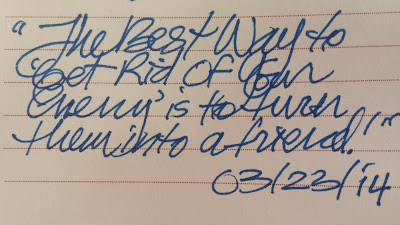 "The Best Way to
Get Rid of Your
Enemy is to turn
them into a friend."
03/23/14